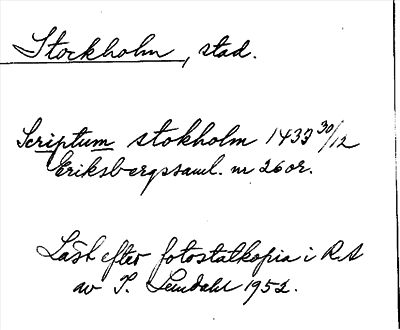 Stockholm, stad.
Scriptum stokholm 1433 30/12
Eriksbergssaml. nr 26 or.
Läst efter fotostatkopia i RA
av I. Lindahl 1952.